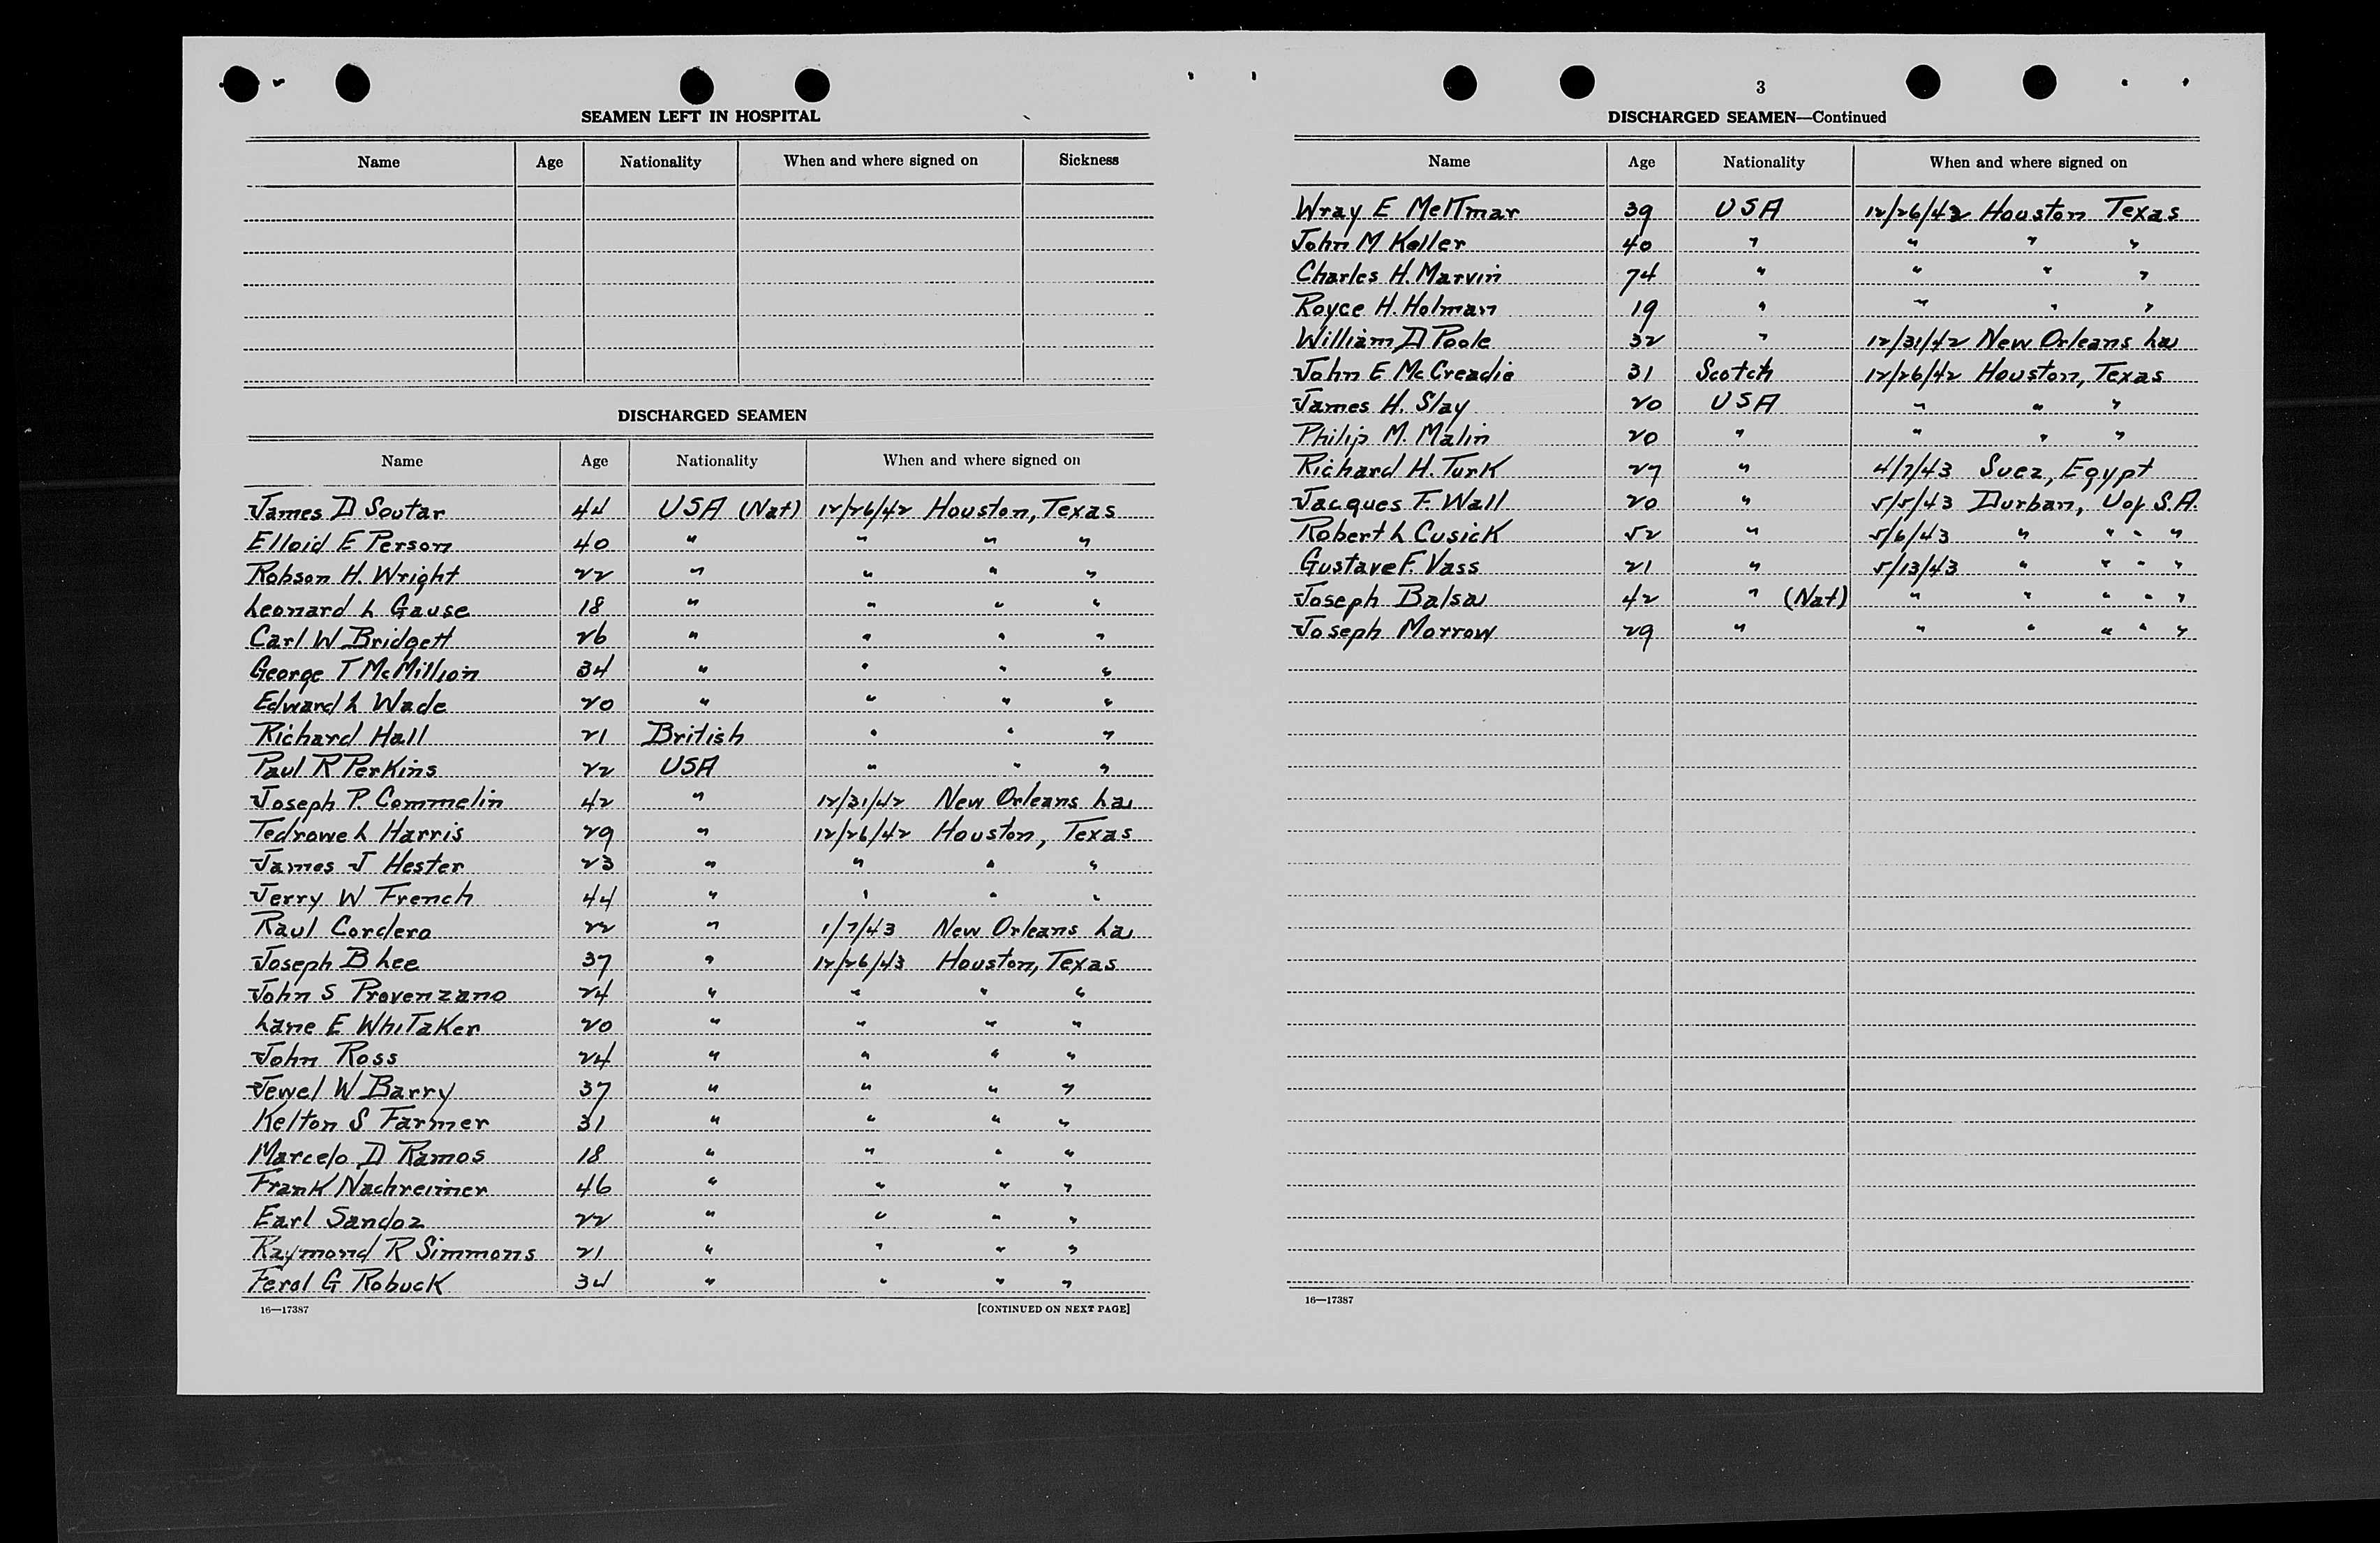 SEAMEN LEFT IN HOSPITAL
Name Age Nationality When and where signed on Sickness
DISCHARGED SEAMEN
Name Age Nationality When and where signed on
James D Soutar 44 USA (Nat) 12/26/42 Houston, Texas
Elloid E Person 40 " " " "
Robson H. Wright 22 " " " "
Leonard L Gause 18 " " " "
Carl W Bridgett 26 " " " "
George T McMillion 34 " " " "
Edward L Wade 20 " " " "
Richard Hall 21 British " " "
Paul R Perkins 22 USA " " "
Joseph P. Commelin 42 " 12/31/42 New Orleans La
Tedrowe L Harris 29 " 12/26/42 Houston, Texas
James J Hester 23 " " " "
Jerry W French 44 " " " "
Raul Cordero 22 " 1/7/43 New Orleans La
Joseph B Lee 37 " 12/26/43 Houston, Texas
John S Provenzano 24 " " " "
Lane E Whitaker 20 " " " "
John Ross 24 " " " "
Jewel W Barry 37 " " " "
Kelton S Farmer 31 " " " "
Marcelo D Ramos 18 " " " "
Frank Nachreiner 46 " " " "
Earl Sandoz 22 " " " "
Raymond R Simmons 21 " " " "
Feral G Robuck 34 " " " "
16—17387 [CONTINUED ON NEXT PAGE]
3
DISCHARGED SEAMEN—Continued
Name Age Nationality When and where signed on
Wray E 39 USA 12/26/42 Houston Texas
John M Keller 40 " " " "
Charles H. Marvin 74 " " " "
Royce H. Holman 19 " " " "
William D Poole 32 " 12/31/42 New Orleans La
John E McCreadie 31 Scotch 12/26/42 Houston, Texas
James H. Slay 20 USA " " "
Philip M. Malin 20 " " " "
Richard H. Turk 27 " 4/7/43 Suez, Egypt
Jacques F. Wall 20 " 5/5/43 Durban, U of S.A.
Robert L Cusick 52 " 5/6/43 " " " "
Gustave F. Vass 21 " 5/13/43 " " " "
Joseph Balsa 42 " (Nat) " " " " "
Joseph Morrow 29 " " " " " "
16—17387